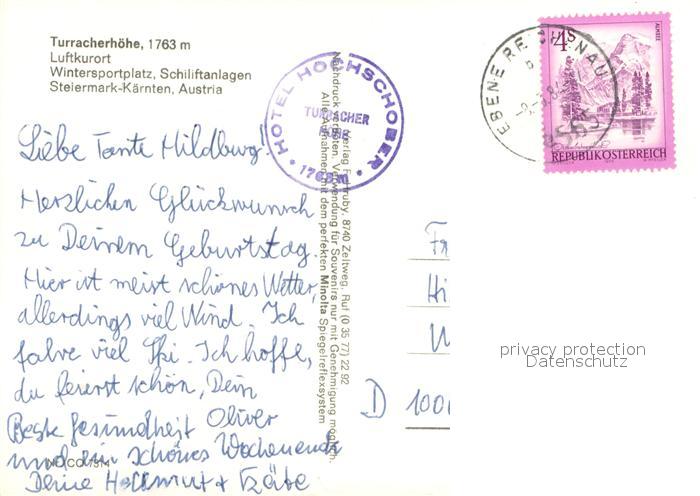 Turracherhöhe, 1763 m
Luftkurort
Wintersportplatz, Schiliftanlagen
Steiermark-Kärnten, Austria
HOTEL HOCHSCHOBER
TURRACHER
HÖHE
1763 m
EBENE REICHENAU
4 S
ALMSEE
REPUBLIK ÖSTERREICH
Liebe Tante Hildburg!
Herzlichen Glückwunsch
zu Deinem Geburtstag.
Hier ist meist schönes Wetter,
allerdings viel Wind. Ich
fahre viel Ski. Ich hoffe,
du feierst schön, Dein
Oliver
Beste Gesundheit
und ein schönes Wochenende
Deine Hellmut + Käte
Verlag Fritz ruby, 8740 Zeltweg, Ruf (0 35 77) 22 92
Nachdruck verboten. Verwendung für Souvenirs nur mit Genehmigung möglich.
Alle Aufnahmen mit dem perfekten Minolta Spiegelreflexsystem
Fr
Hi
D 100
privacy protection
Datenschutz